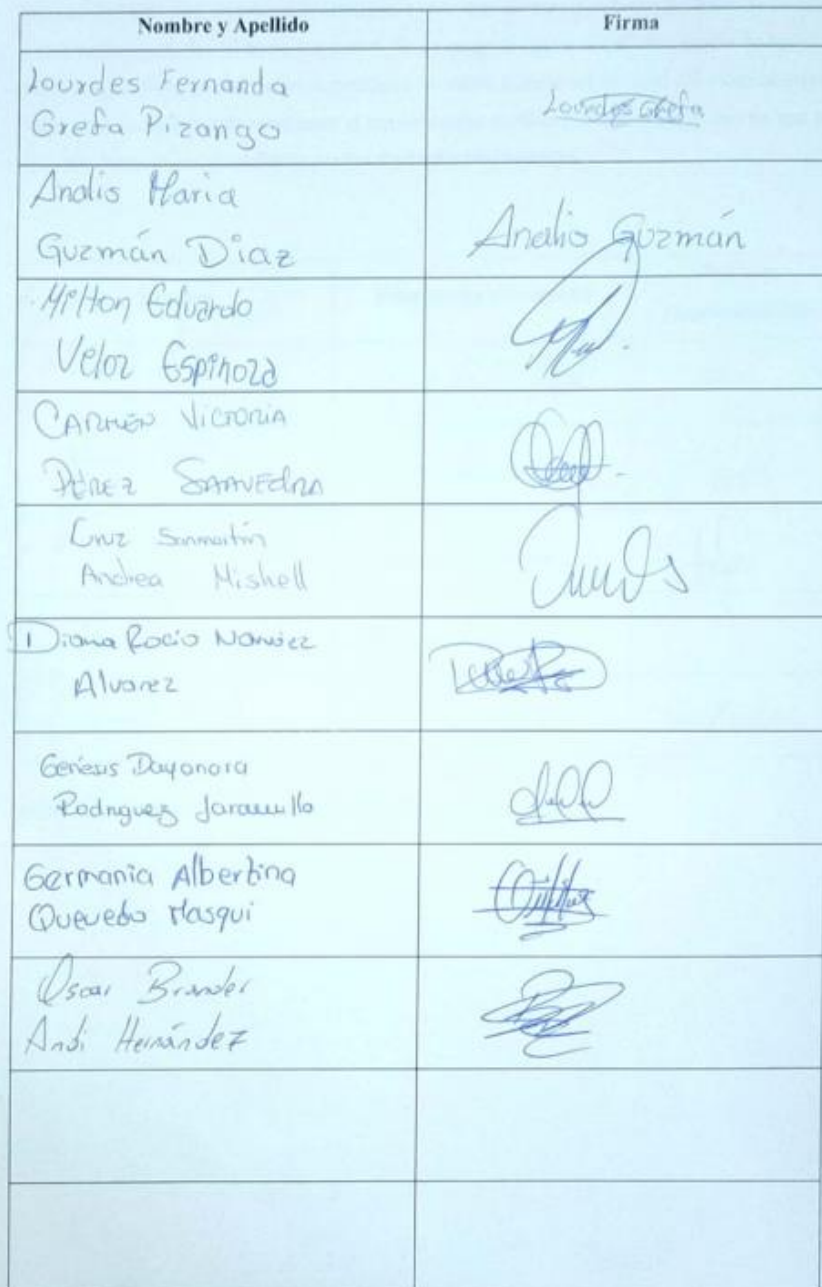 Nombre y Apellido Firma
Lourdes Fernanda
Grefa Pizango
Lourdes Grefa
Analis Maria
Guzmán Diaz
Analis Guzmán
Milton Eduardo
Veloz Espinoza
CARMEN VICTORIA
PÉREZ SAAVEDRA
Cruz Sanmartín
Andrea Mishell
Diana Rocío
Alvarez
Génesis Dayanara
Rodriguez Jaramillo
Germania Albertina
Quevedo Masqui
Oscar
Andi Hernández